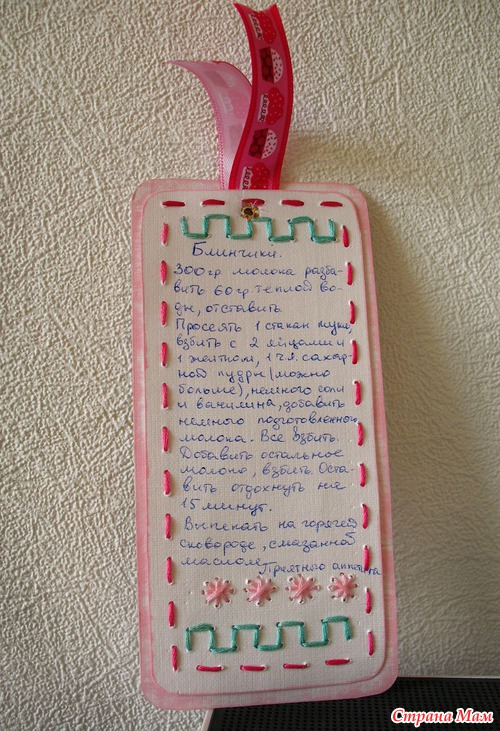 Блинчики.
300гр молока разба-
вить 60гр. теплой во-
ды, отставить
Просеять 1 стакан муки,
взбить с 2 яйцами и
1 желтком, 1 ч.л. сахар-
ной пудры (можно
больше), немного соли
и ванилина, добавить
немного подготовленного
молока. Все взбить.
Добавить остальное
молоко, взбить. Оста-
вить отдохнуть на
15 минут.
Выпекать на горячей
сковороде, смазанной
маслом.
Приятного аппетита
Страна Мам